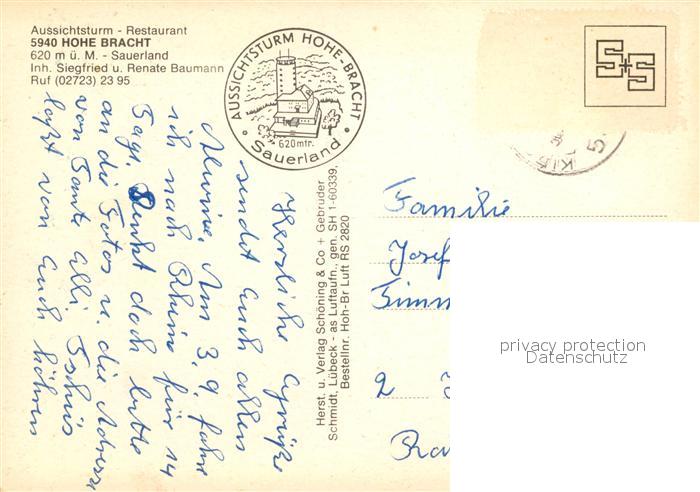 Aussichtsturm - Restaurant
5940 HOHE BRACHT
620 m ü. M. - Sauerland
Inh. Siegfried u. Renate Baumann
Ruf (02723) 23 95
AUSSICHTSTURM HOHE-BRACHT
620 mtr.
Sauerland
S+S
Herzliche Grüße
sendet Euch allen
Alwine. Am 3.9. fahre
ich nach Rheine für 14
Tage. Denkt doch bitte
an die Fotos u. die Adresse
von Tante Elli. Tschüs
laßt von Euch hören
Herst. u. Verlag Schöning & Co + Gebrüder
Schmidt, Lübeck - as Luftaufn., gen. SH 1-60339,
Bestellnr. Hoh-Br Luft RS 2820
Familie
Josef
2
privacy protection
Datenschutz